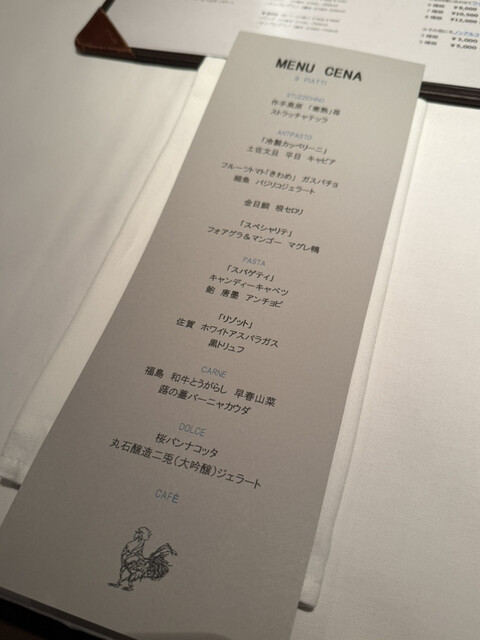 ¥9,000
¥10,500
¥12,000
¥3,000
¥5,000
MENU CENA
9 PIATTI
STUZZICHINO
ストラッチャテッラ
ANTIPASTO
「冷製カッペリーニ」
土佐文旦 平目 キャビア
フルーツトマト「きわめ」 ガスパチョ
バジリコジェラート
金目鯛 根セロリ
「スペシャリテ」
フォアグラ&マンゴー マグレ鴨
PASTA
「スパゲティ」
キャンディーキャベツ
鮑 唐墨 アンチョビ
「リゾット」
佐賀 ホワイトアスパラガス
黒トリュフ
CARNE
福島 和牛とうがらし 早春山菜
蕗の薹バーニャカウダ
DOLCE
桜パンナコッタ
丸石醸造二兎(大吟醸)ジェラート
CAFÉ